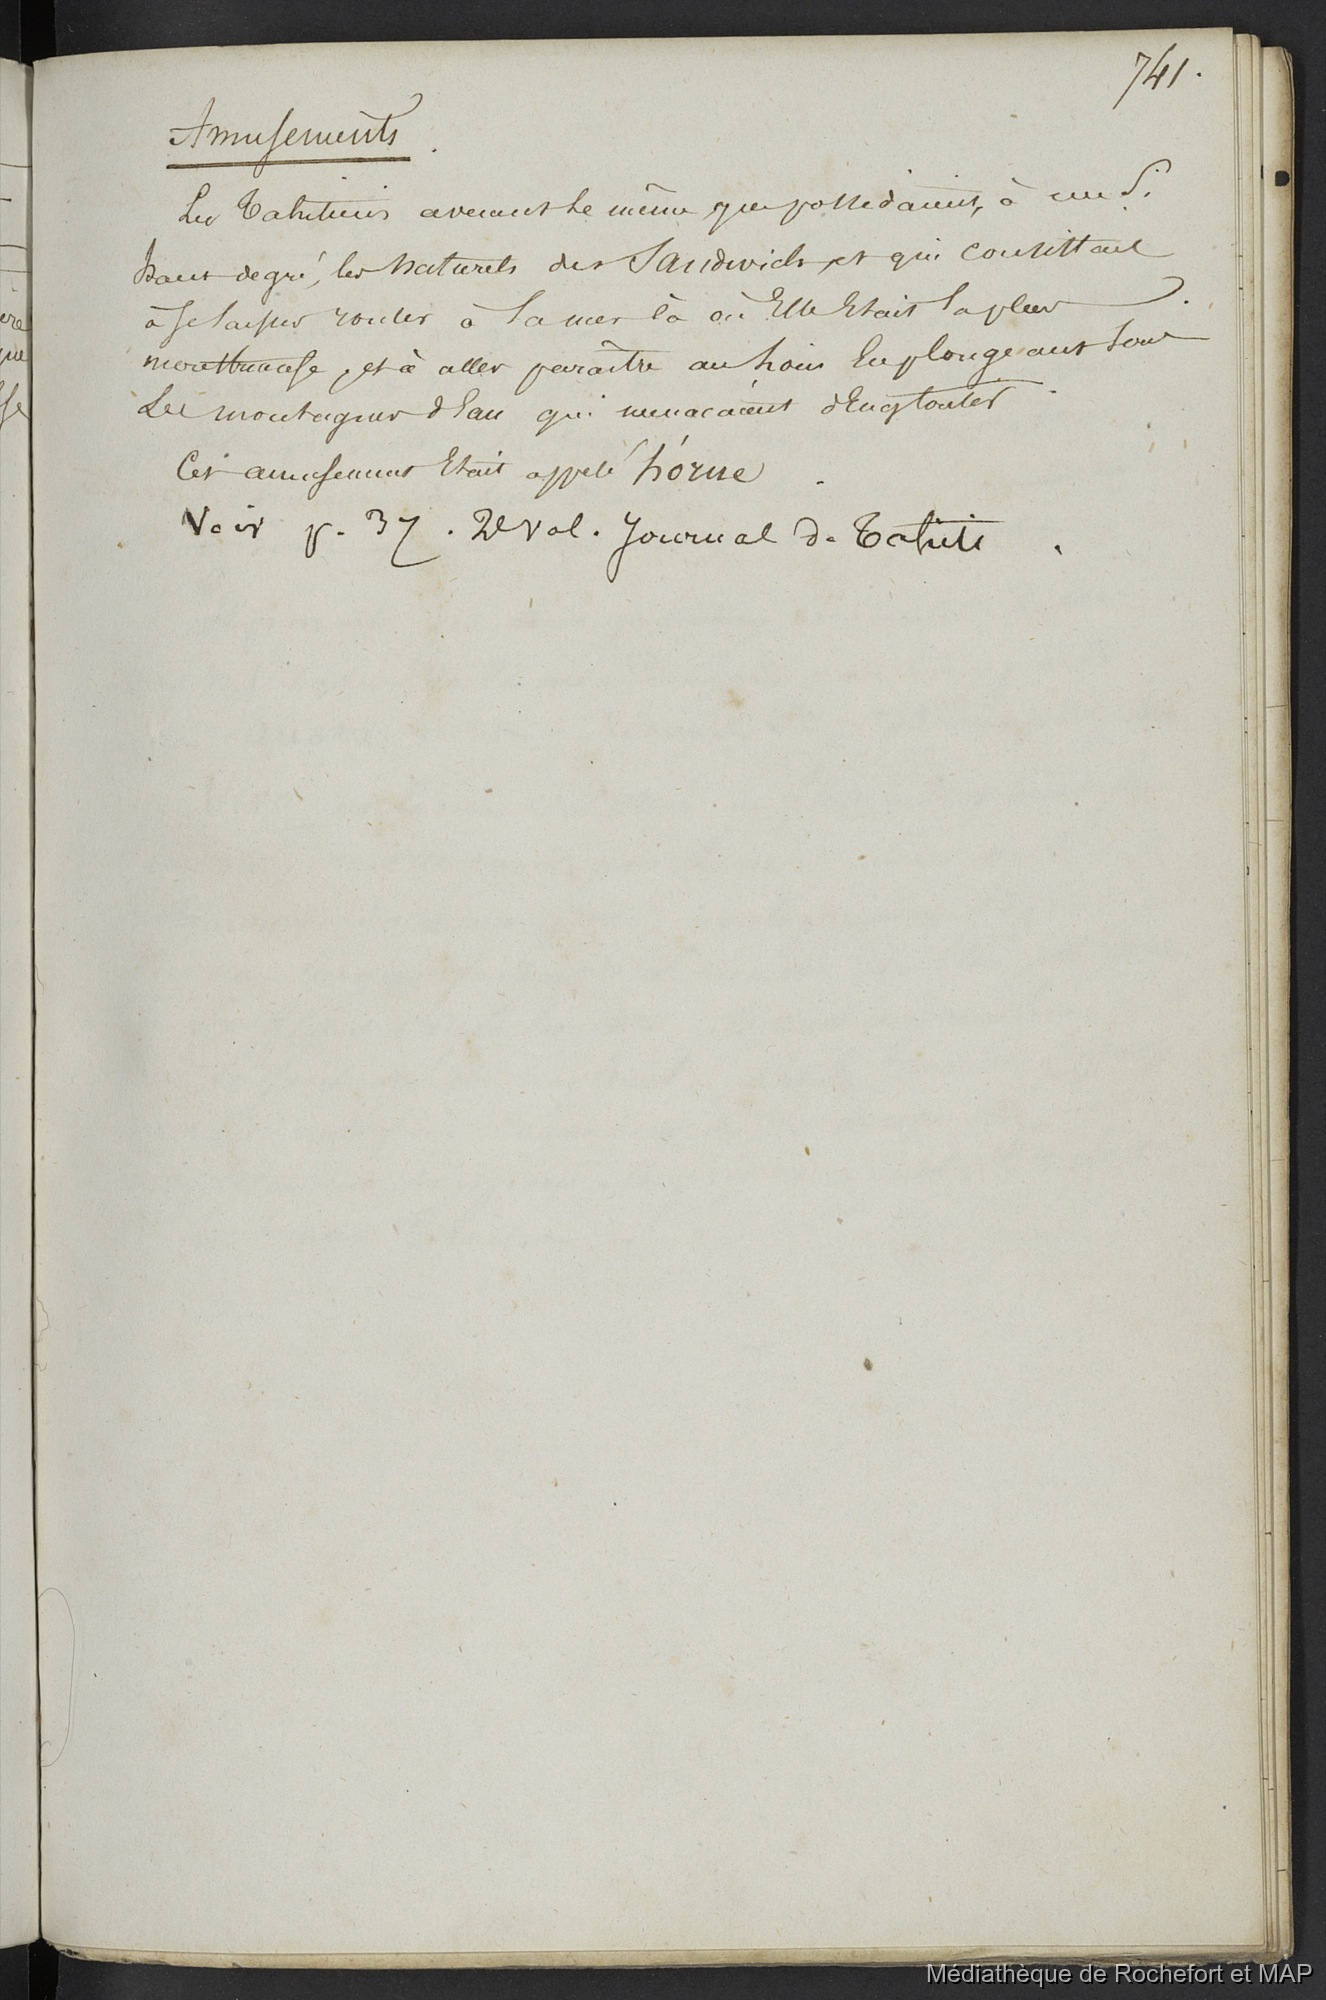 741.
Amusements.
Les Tahitiens avaient le même que possedaient, à un si
haut degré, les naturels des Sandwich, et qui consistait
à se laisser rouler à la mer là où Elle Etait la plus
, et à aller paraître au loin En plongeant sous
Les montagnes d'Eau qui menaçaient d'Engloutir.
Cet amusement Etait appelé hórue.
Voir p. 37. 2e Vol. Journal de Tahiti.
ere
que
sse
Médiathèque de Rochefort et MAP